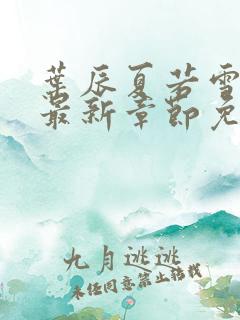 葉辰夏若雪
最新章節免
九月逃逃
未经同意禁止转载